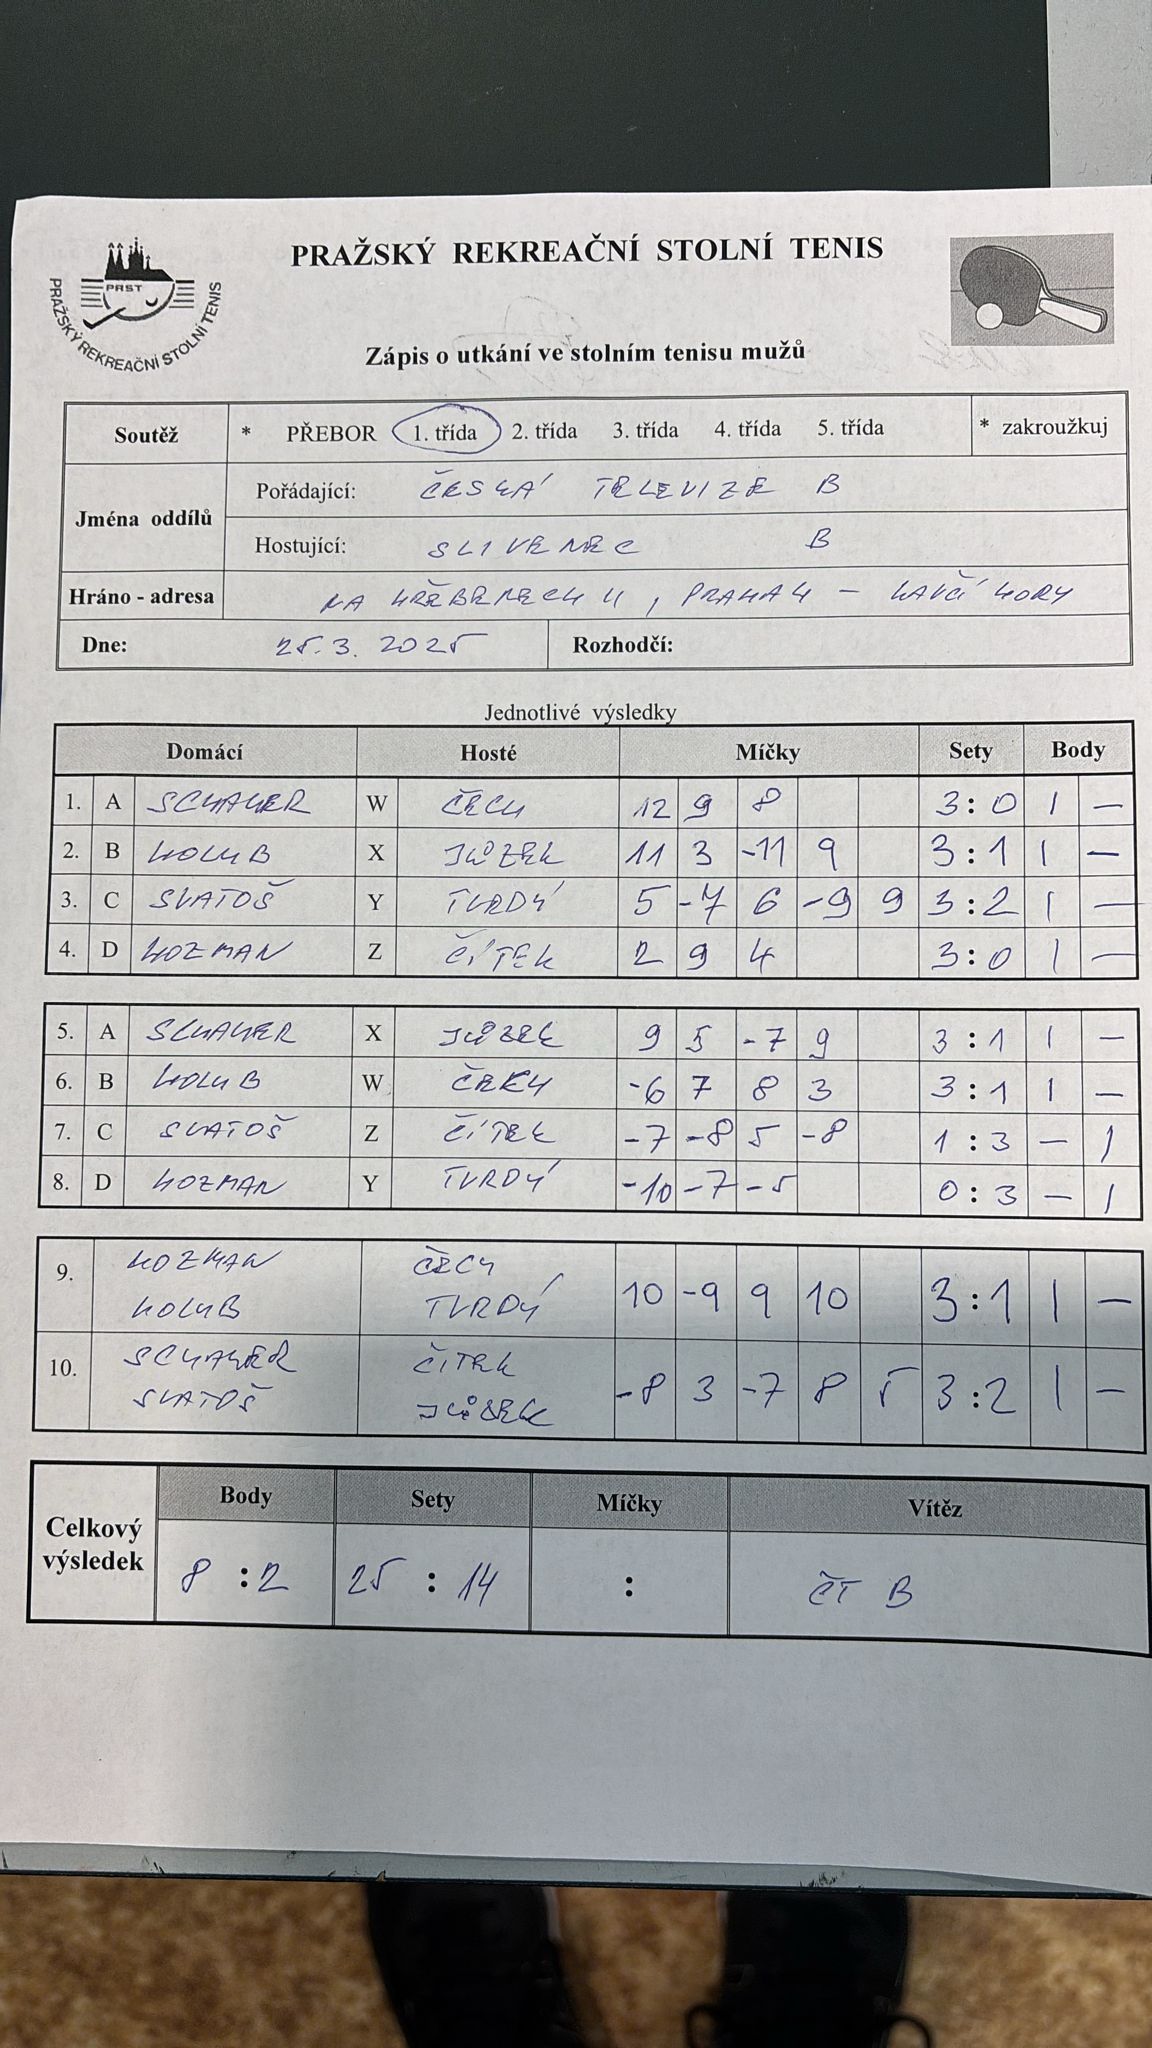 PRAŽSKÝ REKREAČNÍ STOLNÍ TENIS
PRST
PRAŽSKÝ REKREAČNÍ STOLNÍ TENIS
Zápis o utkání ve stolním tenisu mužů
Soutěž * PŘEBOR 1. třída 2. třída 3. třída 4. třída 5. třída * zakroužkuj
Jména oddílů
Pořádající: ČESKÁ TELEVIZE B
Hostující: SLIVENEC B
Hráno - adresa NA HŘEBENECH II, PRAHA 4 - KAVČÍ HORY
Dne: 25.3. 2025 Rozhodčí:
Jednotlivé výsledky
Domácí Hosté Míčky Sety Body
1. A SCHAUER W ČECH 12 9 8 3:0 1 —
2. B HOLUB X JŮZEK 11 3 -11 9 3:1 1 —
3. C SVATOŠ Y TVRDÝ 5 -7 6 -9 9 3:2 1 —
4. D KOZMAN Z ČÍTEK 2 9 4 3:0 1 —
5. A SCHAUER X JŮZEK 9 5 -7 9 3:1 1 —
6. B HOLUB W ČECH -6 7 8 3 3:1 1 —
7. C SVATOŠ Z ČÍTEK -7 -8 5 -8 1:3 — 1
8. D KOZMAN Y TVRDÝ -10 -7 -5 0:3 — 1
9. KOZMAN ČECH
HOLUB TVRDÝ 10 -9 9 10 3:1 1 —
10. SCHAUER ČÍTEK
SVATOŠ JŮZEK -8 3 -7 8 5 3:2 1 —
Celkový výsledek
Body Sety Míčky Vítěz
8 :2 25 : 14 : ČT B